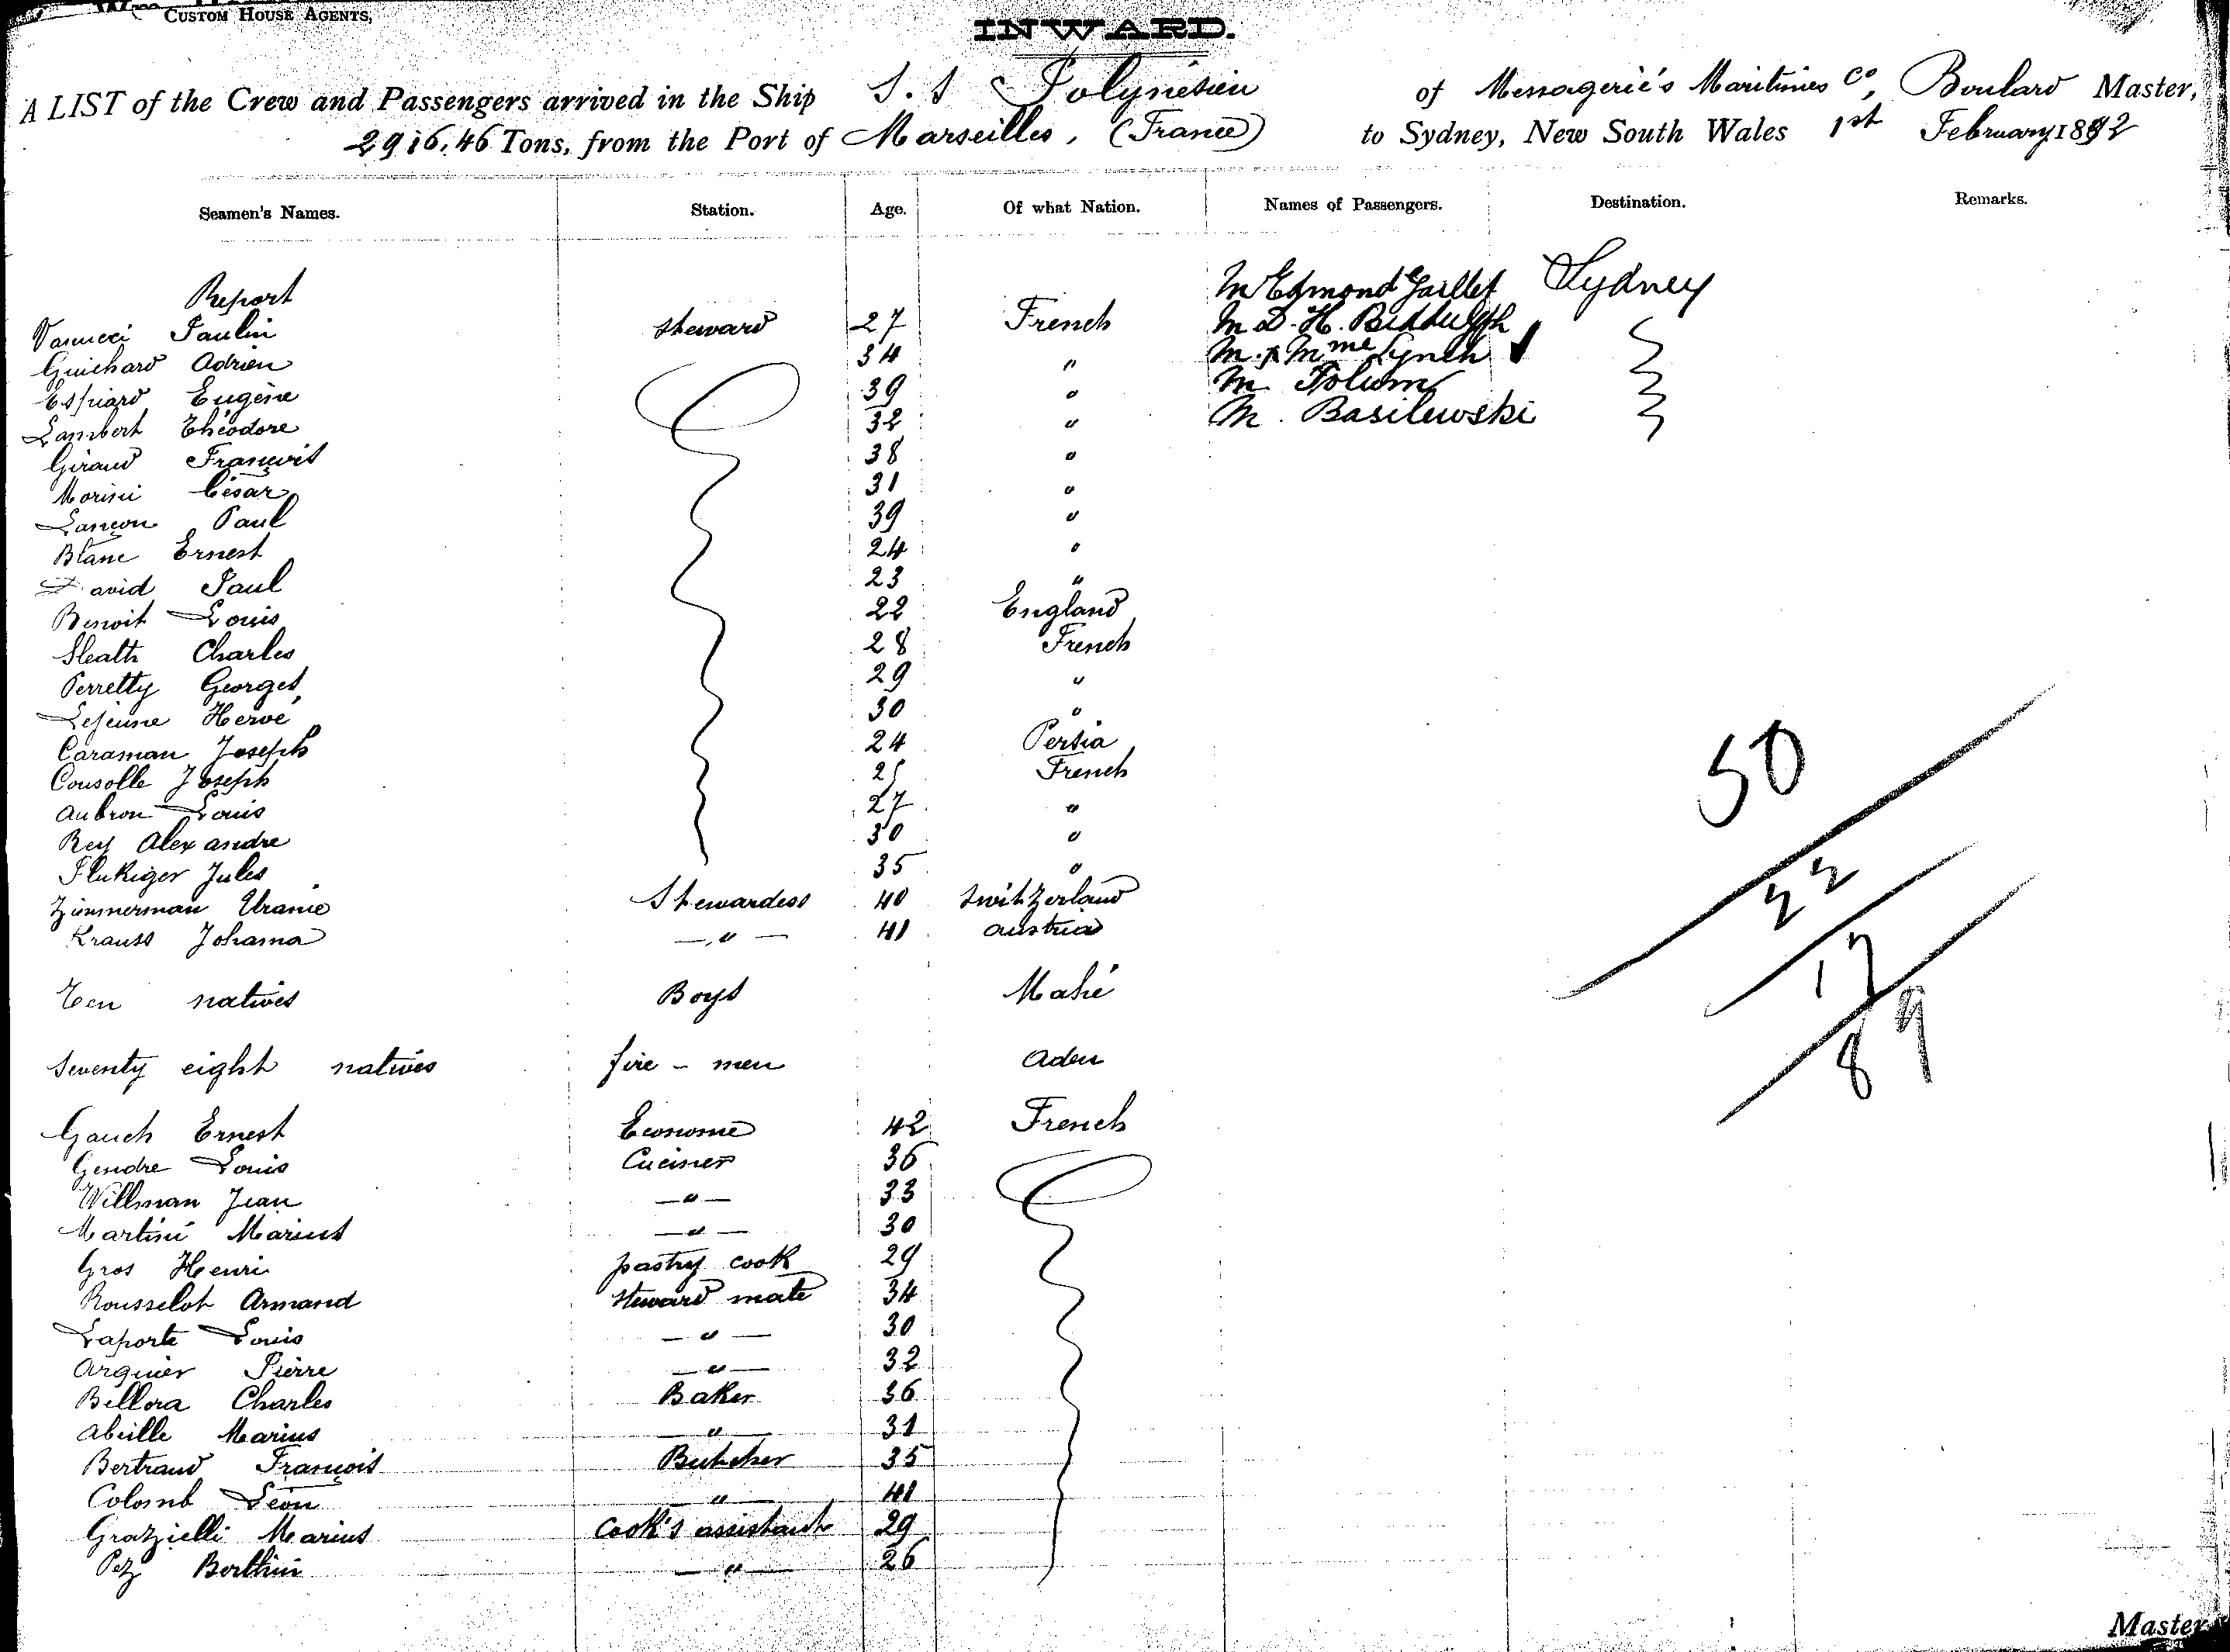 CUSTOM HOUSE AGENTS,
INWARD.
A LIST of the Crew and Passengers arrived in the Ship S.S Polynésien of Messagerie's Maritimes Co, Boulard Master,
2916,46 Tons, from the Port of Marseilles, (France) to Sydney, New South Wales 1st February 1892
Seamen's Names. Station. Age. Of what Nation. Names of Passengers. Destination. Remarks.
M Edmond Gaillet Sydney
Report
Vanucci Paulin Steward 27 French M D. H. Biddulph
Guichard Adrien 34 " M. & Mme Lynch
Espiard Eugène 39 " M.
Lambert Théodore 32 " M. Basilewski
Giraud François 38 "
Morini César 31 "
Lançon Paul 39 "
Blanc Ernest 24 "
David Paul 23 "
Benoit Louis 22 England
Sleath Charles 28 French
Perretty Georges 29 "
Lejeune Hervé 30 "
Caraman Joseph 24 Persia
Cousolle Joseph 25 French
Aubron Louis 27 "
Rey Alexandre 30 "
Flukiger Jules 35 "
Zimmerman Uranie Stewardess 40 Switzerland
Krauss Johanna — " — 41 Austria
Ten natives Boys Mahé
Seventy eight natives fire - men Aden
Gauch Ernest Econome 42 French
Gendre Louis Cuisiner 36
Willman Jean — " — 33
Martini Marius — " — 30
Gros Henri pastry cook 29
Rousselot Armand Steward mate 34
Laporte Louis — " — 30
Arguier Pierre — " — 32
Bellora Charles Baker 36
Abeille Marius — " — 31
Bertrand François Butcher 35
Colomb Léon — " — 41
Grazielli Marius Cook's assistant 29
Pez Berthin — " — 26
50
22
17
89
Master